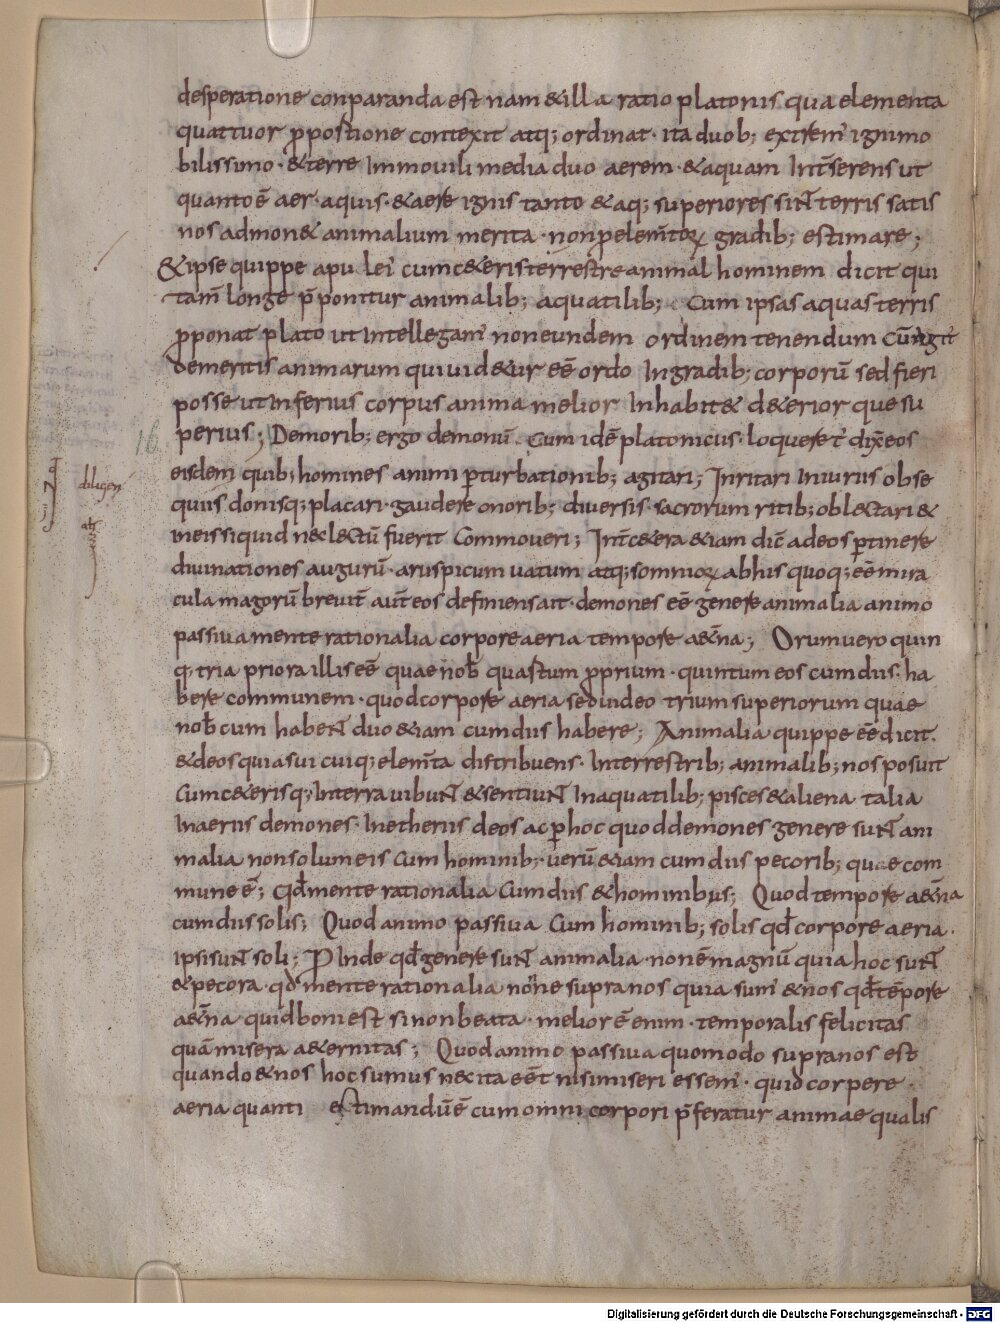 desperatione conparanda est nam &illa ratio platonis qua elementa
quattuor ꝓpostione contexit atq; ordinat · ita duob; extrem̄ igni mo
bilissimo · &terre Inmovili media duo aerem · &aquam Int̄serens ut
quanto ē aer · aquis · &aere ignis tanto &aq; superiores siNt terris satis
nos admon& animalium merita · non ꝓ elem̄toꝝ gradib; estimare;
&ipse quippe apu lei cum c&eris terrestre animal hominem dicit qui
tam̄ longe p̄ponitur animalib; aquatilib; Cum ipsas aquas terris
p̄ponat plato ut Intellegam̄ non eundem ordinem tenendum Cū agit̄
de meritis animarum qui uid&ur eē ordo In gradib; corporū sed fieri
posse ut Inferius corpus anima melior Inhabit& d&erior que su
perius; De morib; ergo demonū · Cum idē platonicus · loquere t̄ dix̄ eos
eisdem quib; homines animi ꝑturbationib; agitari; Inritari Iniuriis obse
quiis donisq; placari · gaudere onoribꝫ diversis · sacrorum ritib; oblectari &
in eis siquid neclectū fuerit Commoveri; Int̄ c&era &iam dic̄ ad eos ꝑtinere
divinationes augurū · aruspicum uatum atq; somnioꝝ ab his quoq; eē mira
cula magorū breuit̄ aut̄ eos definiens ait · demones eē genere animalia animo
passiva mente rationalia corpore aeria tempore a&̄na; Orum uero quin
q; tria priora illis eē quae nob̄ quastum ꝓprium · quintum eos cum diis · ha
bere communem · quod corpore aeria sed uideo trium superiorum quae
nob̄cum habeNt duo &iam cum diis habere; Animalia quippe eē dicit ·
&deos quia sui cuiq; elem̄ta distribuens · In terrestrib; animalib; nos posuit
Cum c&erisq; In terra uibuNt &sentiuNt In aquatilib; pisces &aliena talia
In aeriis demones · In etheriis deos ac ꝑ hoc quod demones genere suNt ani
malia non solum eis Cum hominib; · uerū &iam cum diis pecorib; quae com
mune ē; qd̄ mente rationalia Cum diis &hominibus; Quod tempore a&̄na
cum diis solis; Quod animo passiva Cum hominib; solis qd̄ corpore aeria ·
ipsi suNt soli; Proinde qd̄ genere suNt animalia · non ē magnū quia hoc suNt
&pecora · qd̄ mente rationalia non ne supra nos quia sum̄ &nos qd̄ tēpore
a&̄na · quid boni est si non beata · melior ē enim · temporalis felicitas
quā misera a&ernitas; Quod animo passiva quomodo supra nos est
quando &nos hoc sumus nec ita eēt nisi miseri essem̄ · quid corpere ·
aeria quanti estimandū ē cum omni corpori p̄feratur animae qualis
16
diligen̄
Digitalisierung gefördert durch die Deutsche Forschungsgemeinschaft - DFG